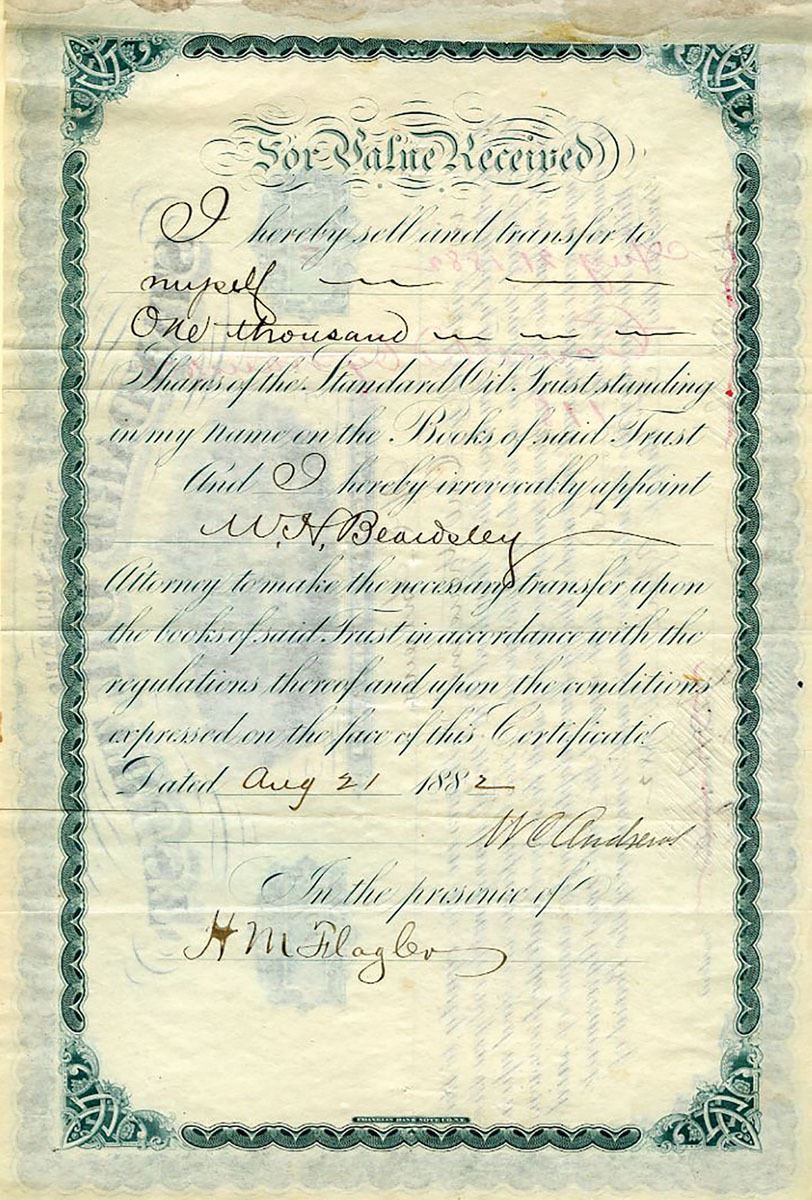 For Value Received
I hereby sell and transfer to
myself
One thousand
Shares of the Standard Oil Trust standing
in my name on the Books of said Trust
And I hereby irrevocably appoint
W. H. Beardsley
Attorney to make the necessary transfer upon
the books of said Trust in accordance with the
regulations thereof and upon the conditions
expressed on the face of this Certificate.
Dated Aug 21 1882
W C Andrews
In the presence of
H M Flagler
FRANKLIN BANK NOTE CO. N.Y.